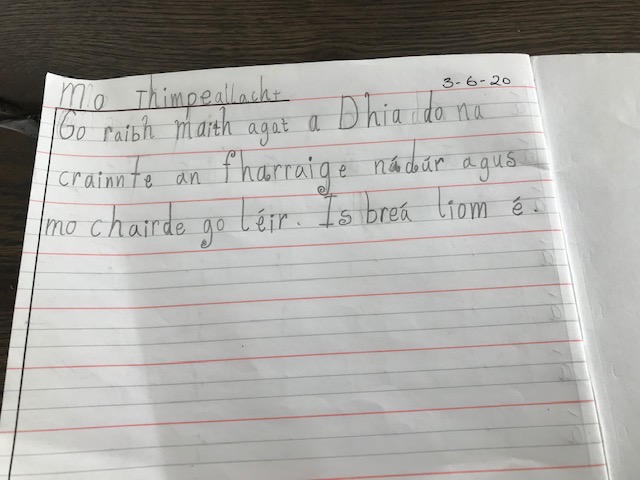 Mo Thimpeallacht
3-6-20
Go raibh maith agat a Dhia do na
crainnte an fharraige nádúr agus
mo chairde go léir. Is breá liom é.